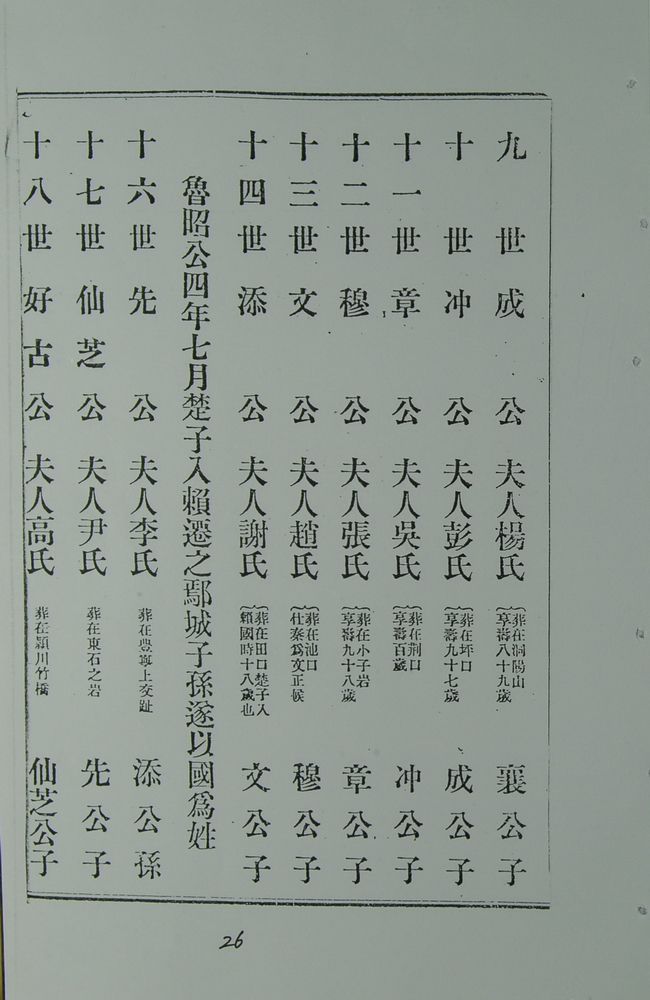 九世成公夫人楊氏葬在洞陽山享壽八十九歲襄公子
十世冲公夫人彭氏葬在坪口享壽九十七歲成公子
十一世章公夫人吳氏葬在荆口享壽百歲冲公子
十二世穆公夫人張氏葬在小子岩享壽九十八歲章公子
十三世文公夫人趙氏葬在池口仕秦爲文正候穆公子
十四世添公夫人謝氏葬在田口楚子入賴國時十八歲也文公子
魯昭公四年七月楚子入賴遷之鄢城子孫遂以國爲姓
十六世先公夫人李氏葬在豊寧上交趾添公孫
十七世仙芝公夫人尹氏葬在東石之岩先公子
十八世好古公夫人高氏葬在潁川竹橋仙芝公子
26